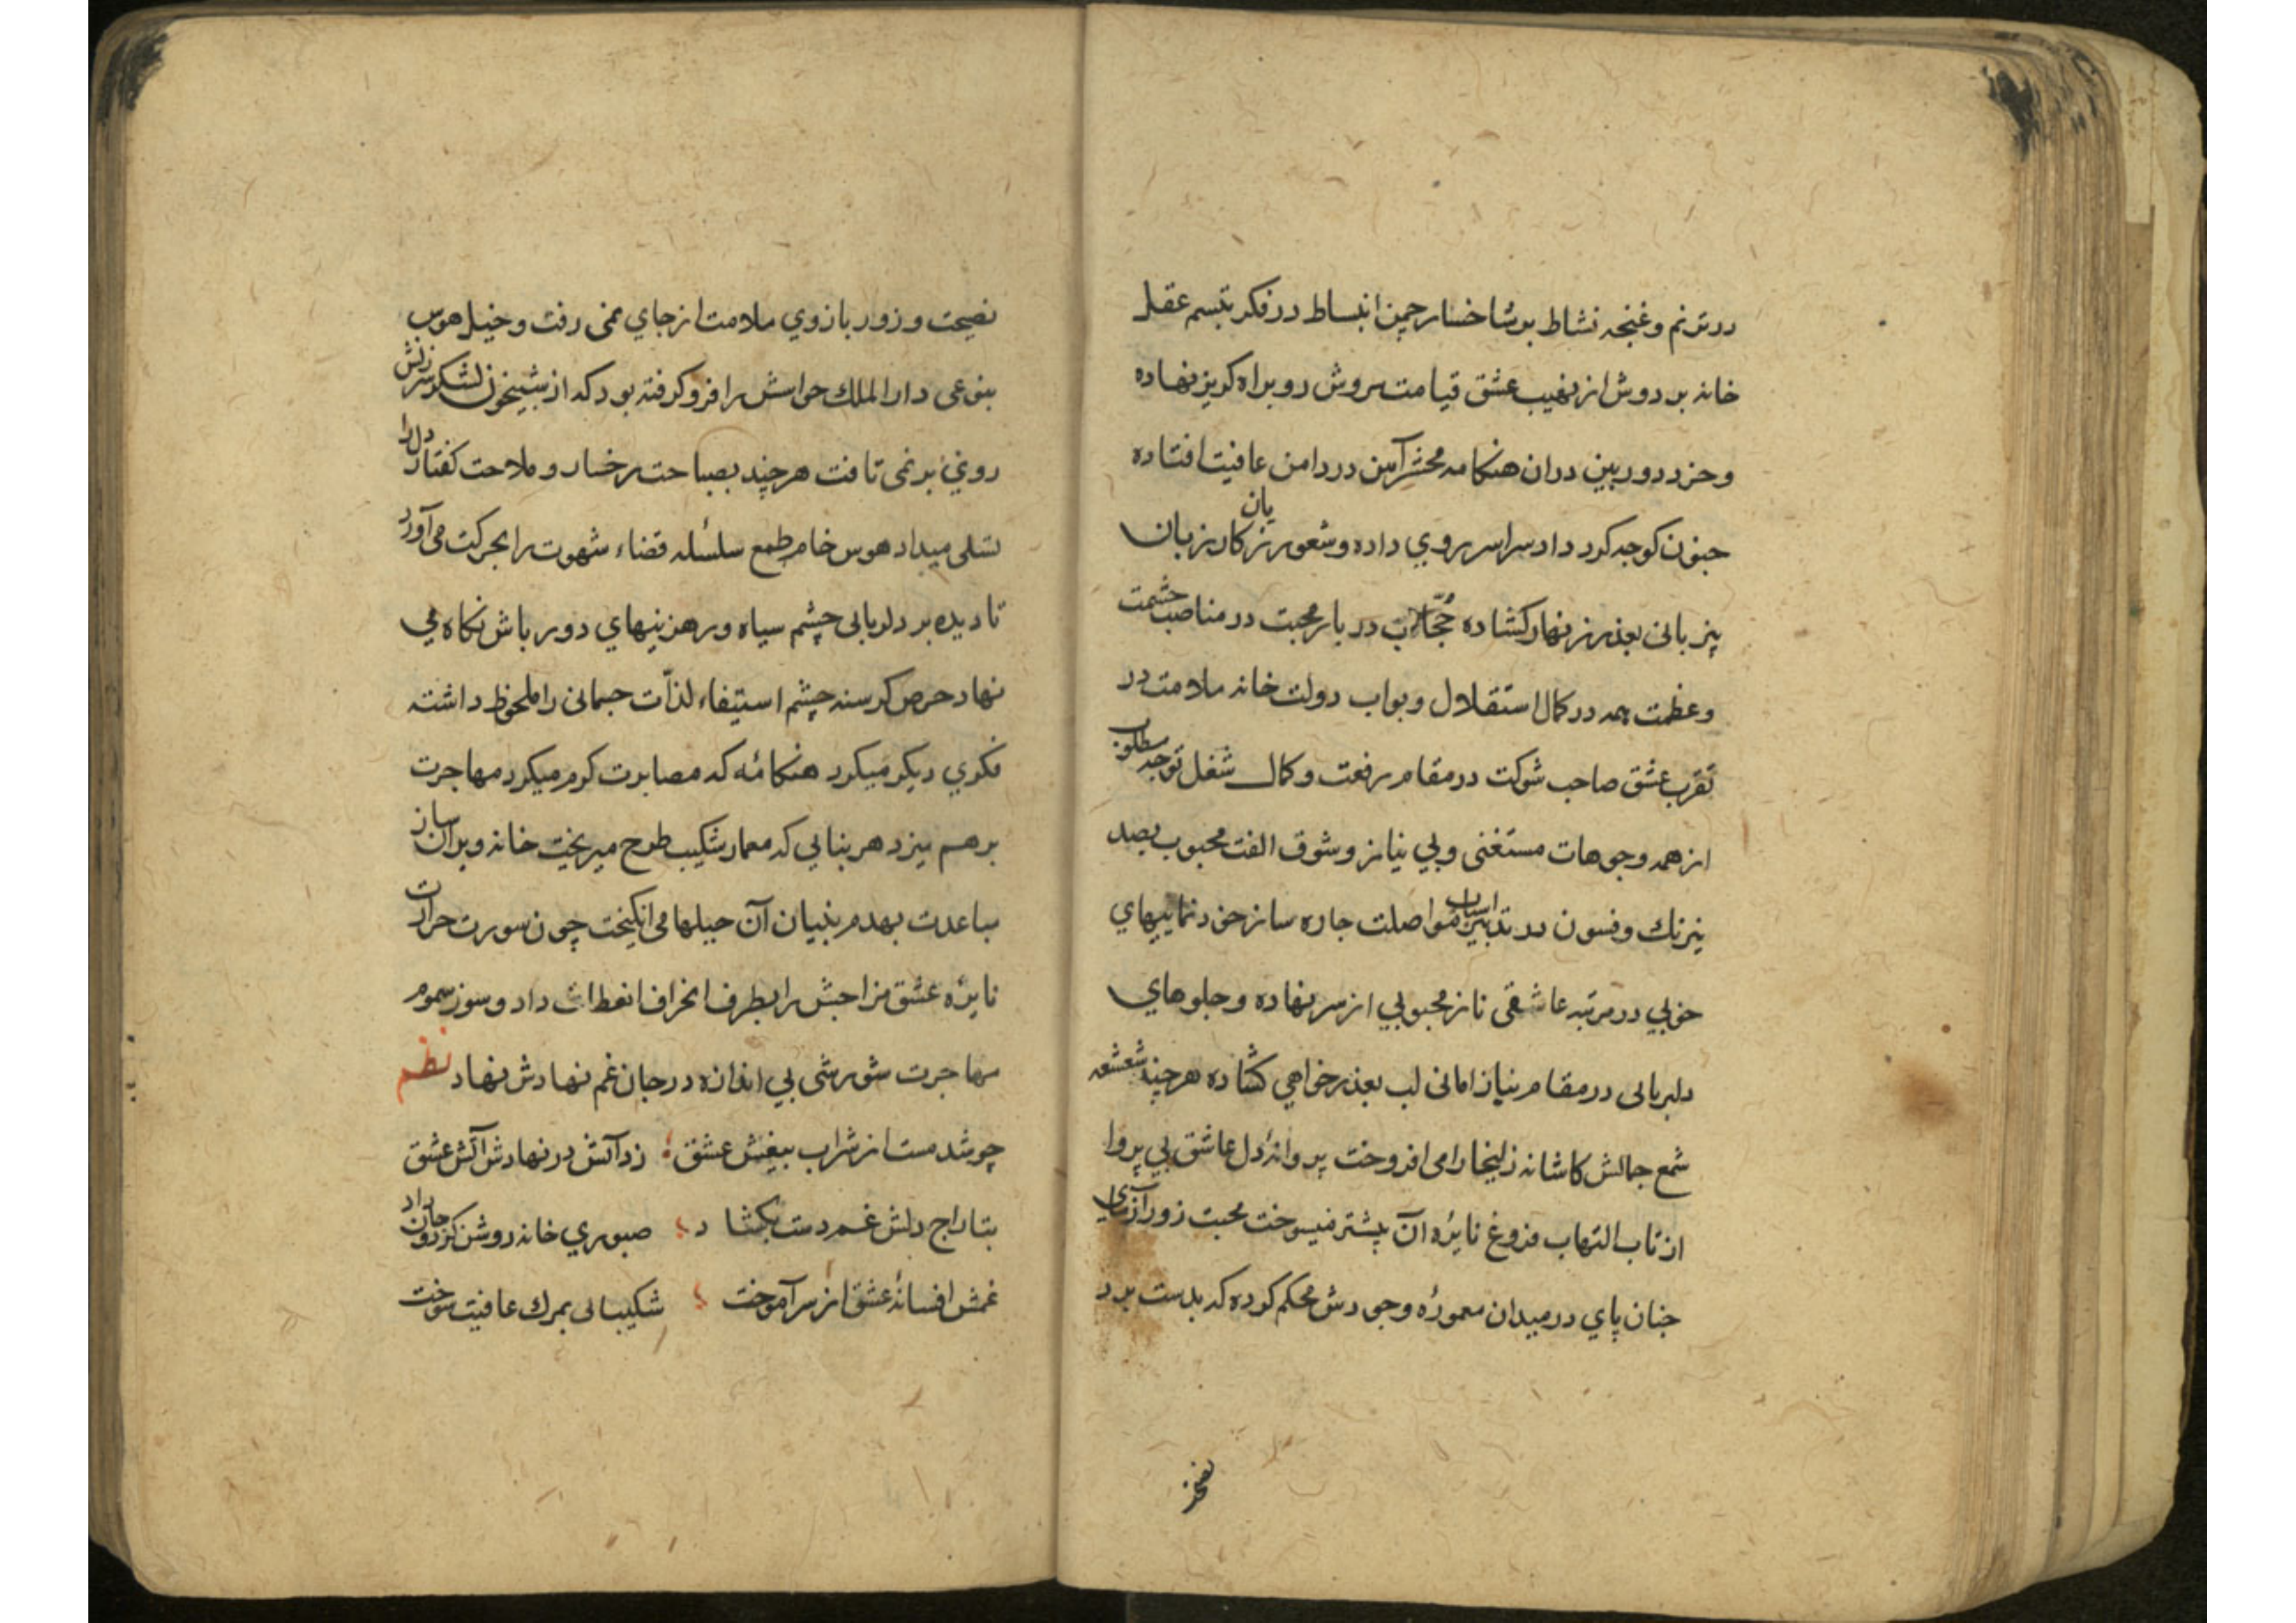 در ترنم و غنچه نشاط بر شاخسار چمن انبساط در فکر تبسم عقل
خانه بر دوش از نهیب عشق قیامت سروش رو براه کریز نهاده
و خرد دور بین دران هنکامه محشر آیین در دامن عافیت افتاده
جنون کوچه کرد داد سراسر روی داده و شعور زیان کار زبان
بیزبانی بعذر زنهار کشاده حجاب دربار محبت در مناصب حشمت
و عظمت همه در کمال استقلال و بواب دولت خانه ملامت در
تقرب عشق صاحب شوکت در مقام رفعت و کمال شغل توجه مطلوب
از همه وجوهات مستغنی و بی نیاز و شوق الفت محبوب بصد
نیرنک و فسون در تدابیر اسباب مواصلت چاره ساز خود نماییهای
خوبی در مرتبه عاشقی ناز محبوبی از سر نهاده و جلوهای
دلربایی در مقام نیاز امانی لب بعذر خواهی کشاده هر چند شعشعه
شمع جمالش کاشانه زلیخا را می افروخت پروانهٔ دل عاشق بی پروا
از تاب التهاب فروغ نایرهٔ آن بیشتر میسوخت محبت زور آزمای
چنان پای در میدان معمورهٔ وجودش محکم کرده که بدست برد
نصیحت و زور بازوی ملامت از جای نمی رفت و خیل هوس
بنوعی دار الملک حواسش را فرو کرفته بود که از شبیخون لشکر سرزنش
روی بر نمی تافت هر چند بصباحت رخسار و ملاحت کفتار دل را
تسلی میداد هوس خام طمع سلسله قضاء شهوت را بحرکت می آورد
تا دیده بر دلربایی چشم سیاه و رهزنیهای دور باش نکاه می
نهاد حرص کرسنه چشم استیفاء لذات جسمانی را ملحوظ داشته
فکری دیکر میکرد هنکامهٔ که مصابرت کرم میکرد مهاجرت
برهم میزد هر بنایی که معمار شکیب طرح میریخت خانه ویران ساز
مباعدت بهدم بنیان آن حیلها می انکیخت چون سورت حرارت
نایرهٔ عشق مزاجش را بطرف انحراف انعطاف داد و سوز سموم
مهاجرت شورشی بی اندازه در جان غم نهادش نهاد نظم
چو شد مست از شراب بیغش عشق زد آتش در نهادش آتش عشق
بتاراج دلش غم دست بکشاد صبوری خانه روشن کرد و جان داد
غمش افسانهٔ عشق از سر آموخت شکیبایی بمرک عافیت سوخت